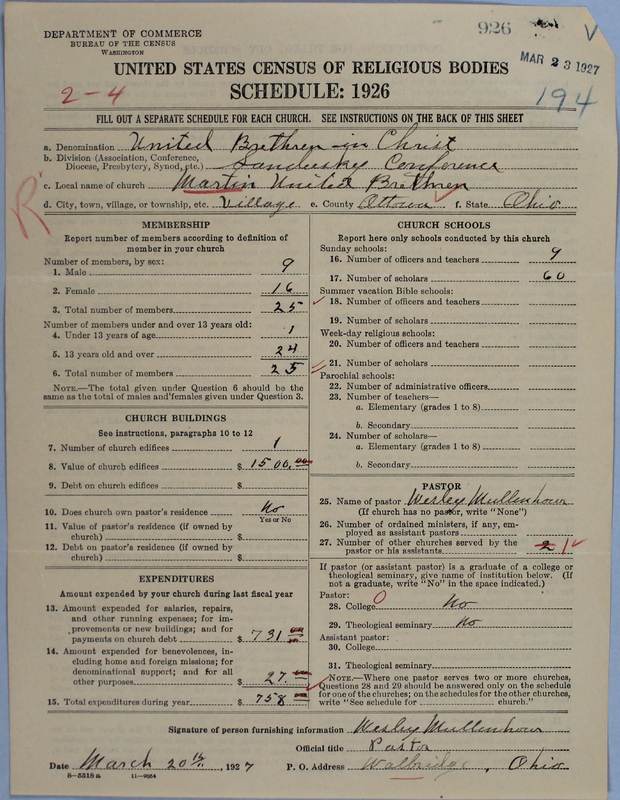 DEPARTMENT OF COMMERCE
BUREAU OF THE CENSUS
WASHINGTON
926
V
MAR 23 1927
UNITED STATES CENSUS OF RELIGIOUS BODIES
SCHEDULE: 1926
2-4
194
FILL OUT A SEPARATE SCHEDULE FOR EACH CHURCH. SEE INSTRUCTIONS ON THE BACK OF THIS SHEET
a. Denomination United Brethren in Christ
b. Division (Association, Conference,
Diocese, Presbytery, Synod, etc.) Sandusky Conference
c. Local name of church Martin United Brethren
R
d. City, town, village, or township, etc. Village e. County Ottowa f. State Ohio
MEMBERSHIP
Report number of members according to definition of
member in your church
Number of members, by sex:
1. Male 9
2. Female 16
3. Total number of members 25
Number of members under and over 13 years old:
4. Under 13 years of age 1
5. 13 years old and over 24
6. Total number of members 25
NOTE.—The total given under Question 6 should be the
same as the total of males and females given under Question 3.
CHURCH BUILDINGS
See instructions, paragraphs 10 to 12
7. Number of church edifices 1
8. Value of church edifices $ 1500.00
9. Debt on church edifices $
10. Does church own pastor's residence No
Yes or No
11. Value of pastor's residence (if owned by
church) $
12. Debt on pastor's residence (if owned by
church) $
EXPENDITURES
Amount expended by your church during last fiscal year
13. Amount expended for salaries, repairs,
and other running expenses; for im-
provements or new buildings; and for
payments on church debt $ 731 00
14. Amount expended for benevolences, in-
cluding home and foreign missions; for
denominational support; and for all
other purposes $ 27.00
15. Total expenditures during year $ 758 00
CHURCH SCHOOLS
Report here only schools conducted by this church
Sunday schools:
16. Number of officers and teachers 9
17. Number of scholars 60
Summer vacation Bible schools:
18. Number of officers and teachers
19. Number of scholars
Week-day religious schools:
20. Number of officers and teachers
21. Number of scholars
Parochial schools:
22. Number of administrative officers
23. Number of teachers—
a. Elementary (grades 1 to 8)
b. Secondary
24. Number of scholars—
a. Elementary (grades 1 to 8)
b. Secondary
PASTOR
25. Name of pastor Wesley Mullenhour
(If church has no pastor, write "None")
26. Number of ordained ministers, if any, em-
ployed as assistant pastors
27. Number of other churches served by the
pastor or his assistants 2 1
If pastor (or assistant pastor) is a graduate of a college or
theological seminary, give name of institution below. (If
not a graduate, write "No" in the space indicated.)
Pastor:
28. College 0 No
29. Theological seminary No
Assistant pastor:
30. College
31. Theological seminary
NOTE.—Where one pastor serves two or more churches,
Questions 28 and 29 should be answered only on the schedule
for one of the churches; on the schedules for the other churches,
write "See schedule for church."
Signature of person furnishing information Wesley Mullenhour
Official title Pastor
Date March 20th, 1927 P. O. Address Walbridge, Ohio
8-5518a 11-9664